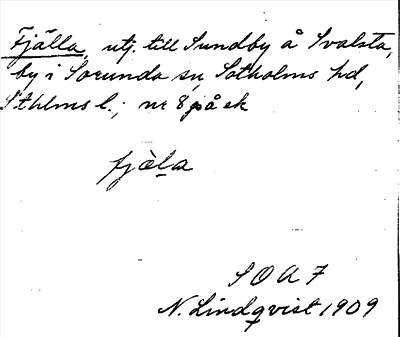 Fjälla, utj. till Sundby å Svalsta,
by i Sorunda sn, Sotholms hd,
Sthlms l.; nr 8 på ek
fjäla
S O A F
N. Lindqvist 1909